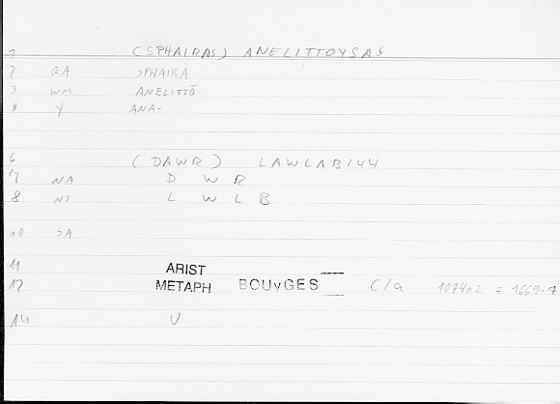 1 (SPHAIRAS) ANELITTOYSAS
2 GA SPHAIRA
3 WM ANELITTŌ
4 Y ANA-
6 (DAWR) LAWLAB144
7 NA D W R
8 NJ L W L B
10 SA
11 ARIST
12 METAPH BOUvGES C/a 1074a2 = 1669.7
14 V